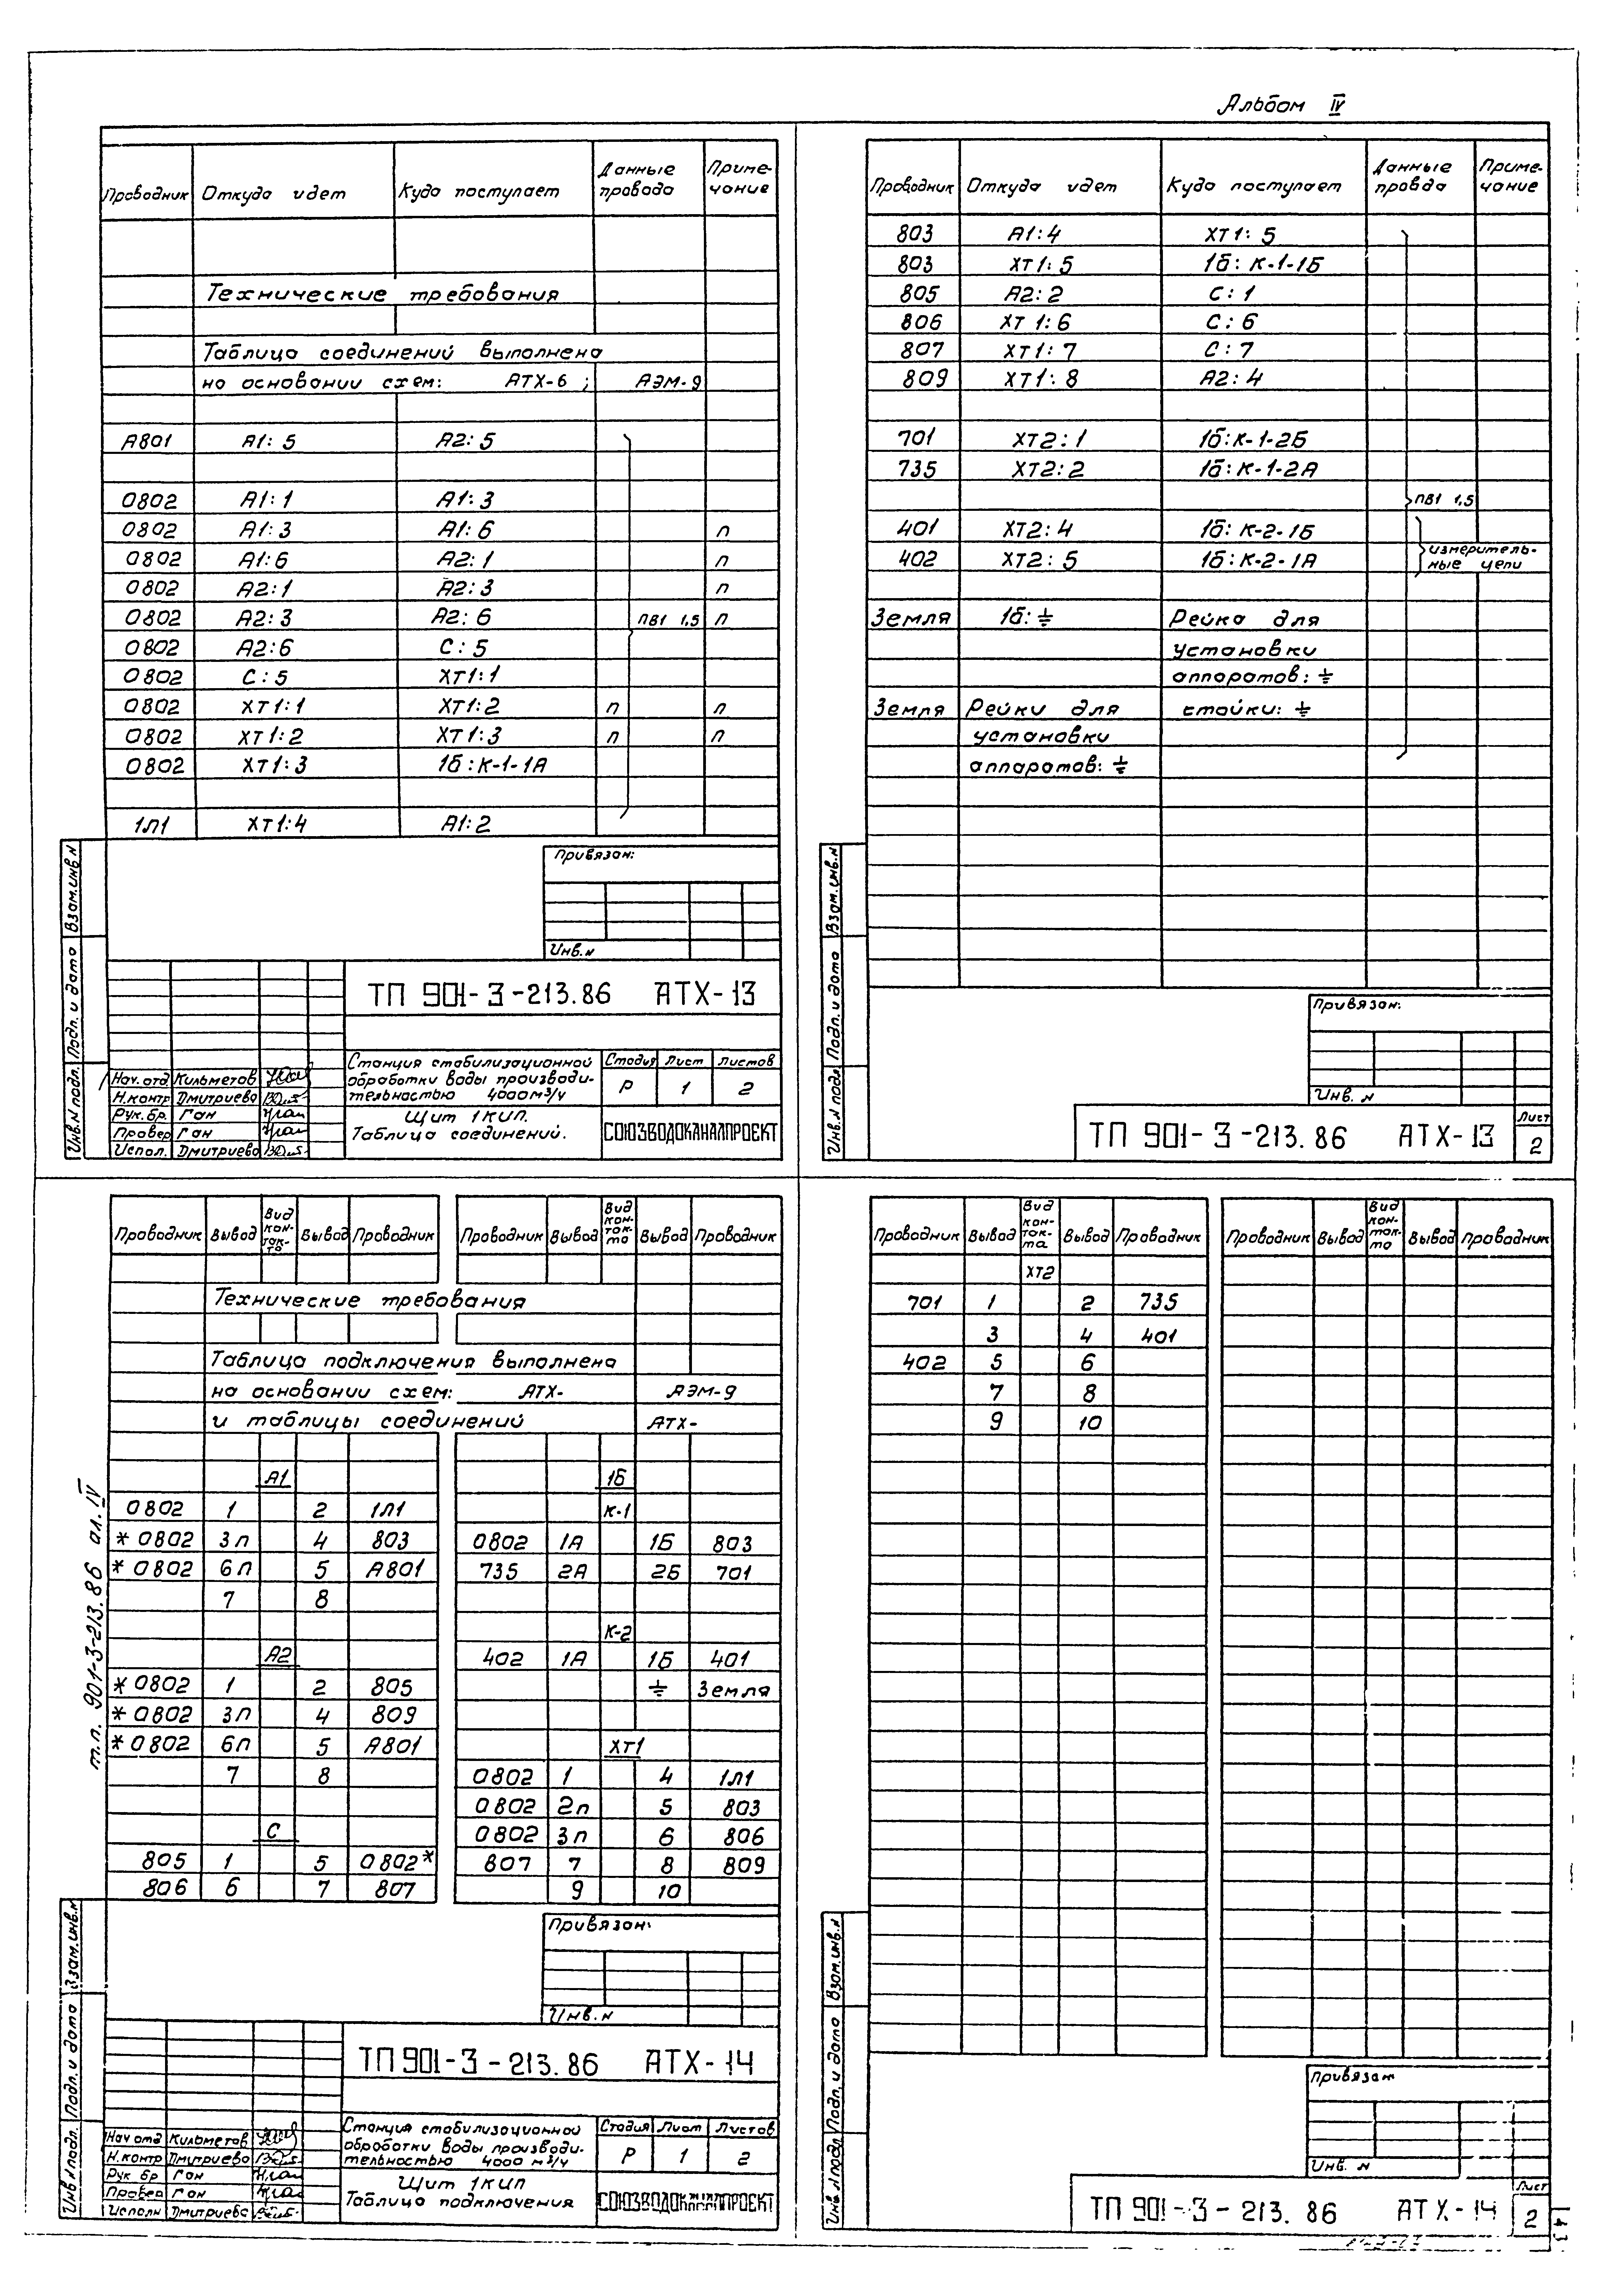 Альбом IV
Проводник Откуда идет Куда поступает Данные провода Приме-чание
Технические требования
Таблица соединений выполнена
на основании схем: АТХ-6 ; АЭМ-9
А801 А1:5 А2:5
0802 А1:1 А1:3
0802 А1:3 А1:6 п
0802 А1:6 А2:1 п
0802 А2:1 А2:3 п
0802 А2:3 А2:6 ПВ1 1,5 п
0802 А2:6 С:5
0802 С:5 ХТ1:1
0802 ХТ1:1 ХТ1:2 п п
0802 ХТ1:2 ХТ1:3 п п
0802 ХТ1:3 1б:К-1-1А
1Л1 ХТ1:4 А1:2
Привязан:
Инв.н
ТП 901-3-213.86 АТХ-13
Станция стабилизационной
обработки воды производи-
тельностью 4000м³/ч
Стадия Лист Листов
Р 1 2
Щит 1КИП.
Таблица соединений.
СОЮЗВОДОКАНАЛПРОЕКТ
Нач.отд Кильметов
Н.контр Дмитриева
Рук.бр. Ган
Провер Ган
Испол. Дмитриева
Инв.N подл. Подп. и дата Взам.инв.N
Проводник Откуда идет Куда поступает Данные провода Приме-чание
803 А1:4 ХТ1:5
803 ХТ1:5 1б:К-1-1Б
805 А2:2 С:1
806 ХТ1:6 С:6
807 ХТ1:7 С:7
809 ХТ1:8 А2:4
701 ХТ2:1 1б:К-1-2Б
735 ХТ2:2 1б:К-1-2А
ПВ1 1,5
401 ХТ2:4 1б:К-2-1Б
402 ХТ2:5 1б:К-2-1А
измеритель-
ные цепи
Земля 1б:⏚ Рейка для
установки
аппаратов:⏚
Земля Рейки для стойки:⏚
установки
аппаратов:⏚
Привязан:
Инв. н
ТП 901-3-213.86 АТХ-13
Лист
2
Инв.N подл Подп. и дата Взам.инв.N
Проводник Вывод Вид кон-так-та Вывод Проводник Проводник Вывод Вид кон-так-та Вывод Проводник
Технические требования
Таблица подключения выполнена
на основании схем: АТХ- АЭМ-9
и таблицы соединений АТХ-
А1
0802 1 2 1Л1
*0802 3п 4 803
*0802 6п 5 А801
7 8
А2
*0802 1 2 805
*0802 3п 4 809
*0802 6п 5 А801
7 8
С
805 1 5 0802*
806 6 7 807
1Б
К-1
0802 1А 1Б 803
735 2А 2Б 701
К-2
402 1А 1Б 401
⏚ Земля
ХТ1
0802 1 4 1Л1
0802 2п 5 803
0802 3п 6 806
807 7 8 809
9 10
т.п. 901-3-213.86 ал. IV
Привязан:
Инв.н
ТП 901-3-213.86 АТХ-14
Станция стабилизационной
обработки воды производи-
тельностью 4000 м³/ч
Стадия Лист Листов
Р 1 2
Щит 1КИП
Таблица подключения
СОЮЗВОДОКАНАЛПРОЕКТ
Нач отд Кильметов
Н.контр Дмитриева
Рук бр Ган
Провер Ган
Исполн Дмитриева
Инв.N подл. Подп. и дата Взам.инв.N
Проводник Вывод Вид кон-так-та Вывод Проводник Проводник Вывод Вид кон-так-та Вывод Проводник
ХТ2
701 1 2 735
3 4 401
402 5 6
7 8
9 10
Привязан
Инв. н
ТП 901-3-213.86 АТХ-14
Лист
2
143
Инв.N подл Подп. и дата Взам.инв.N